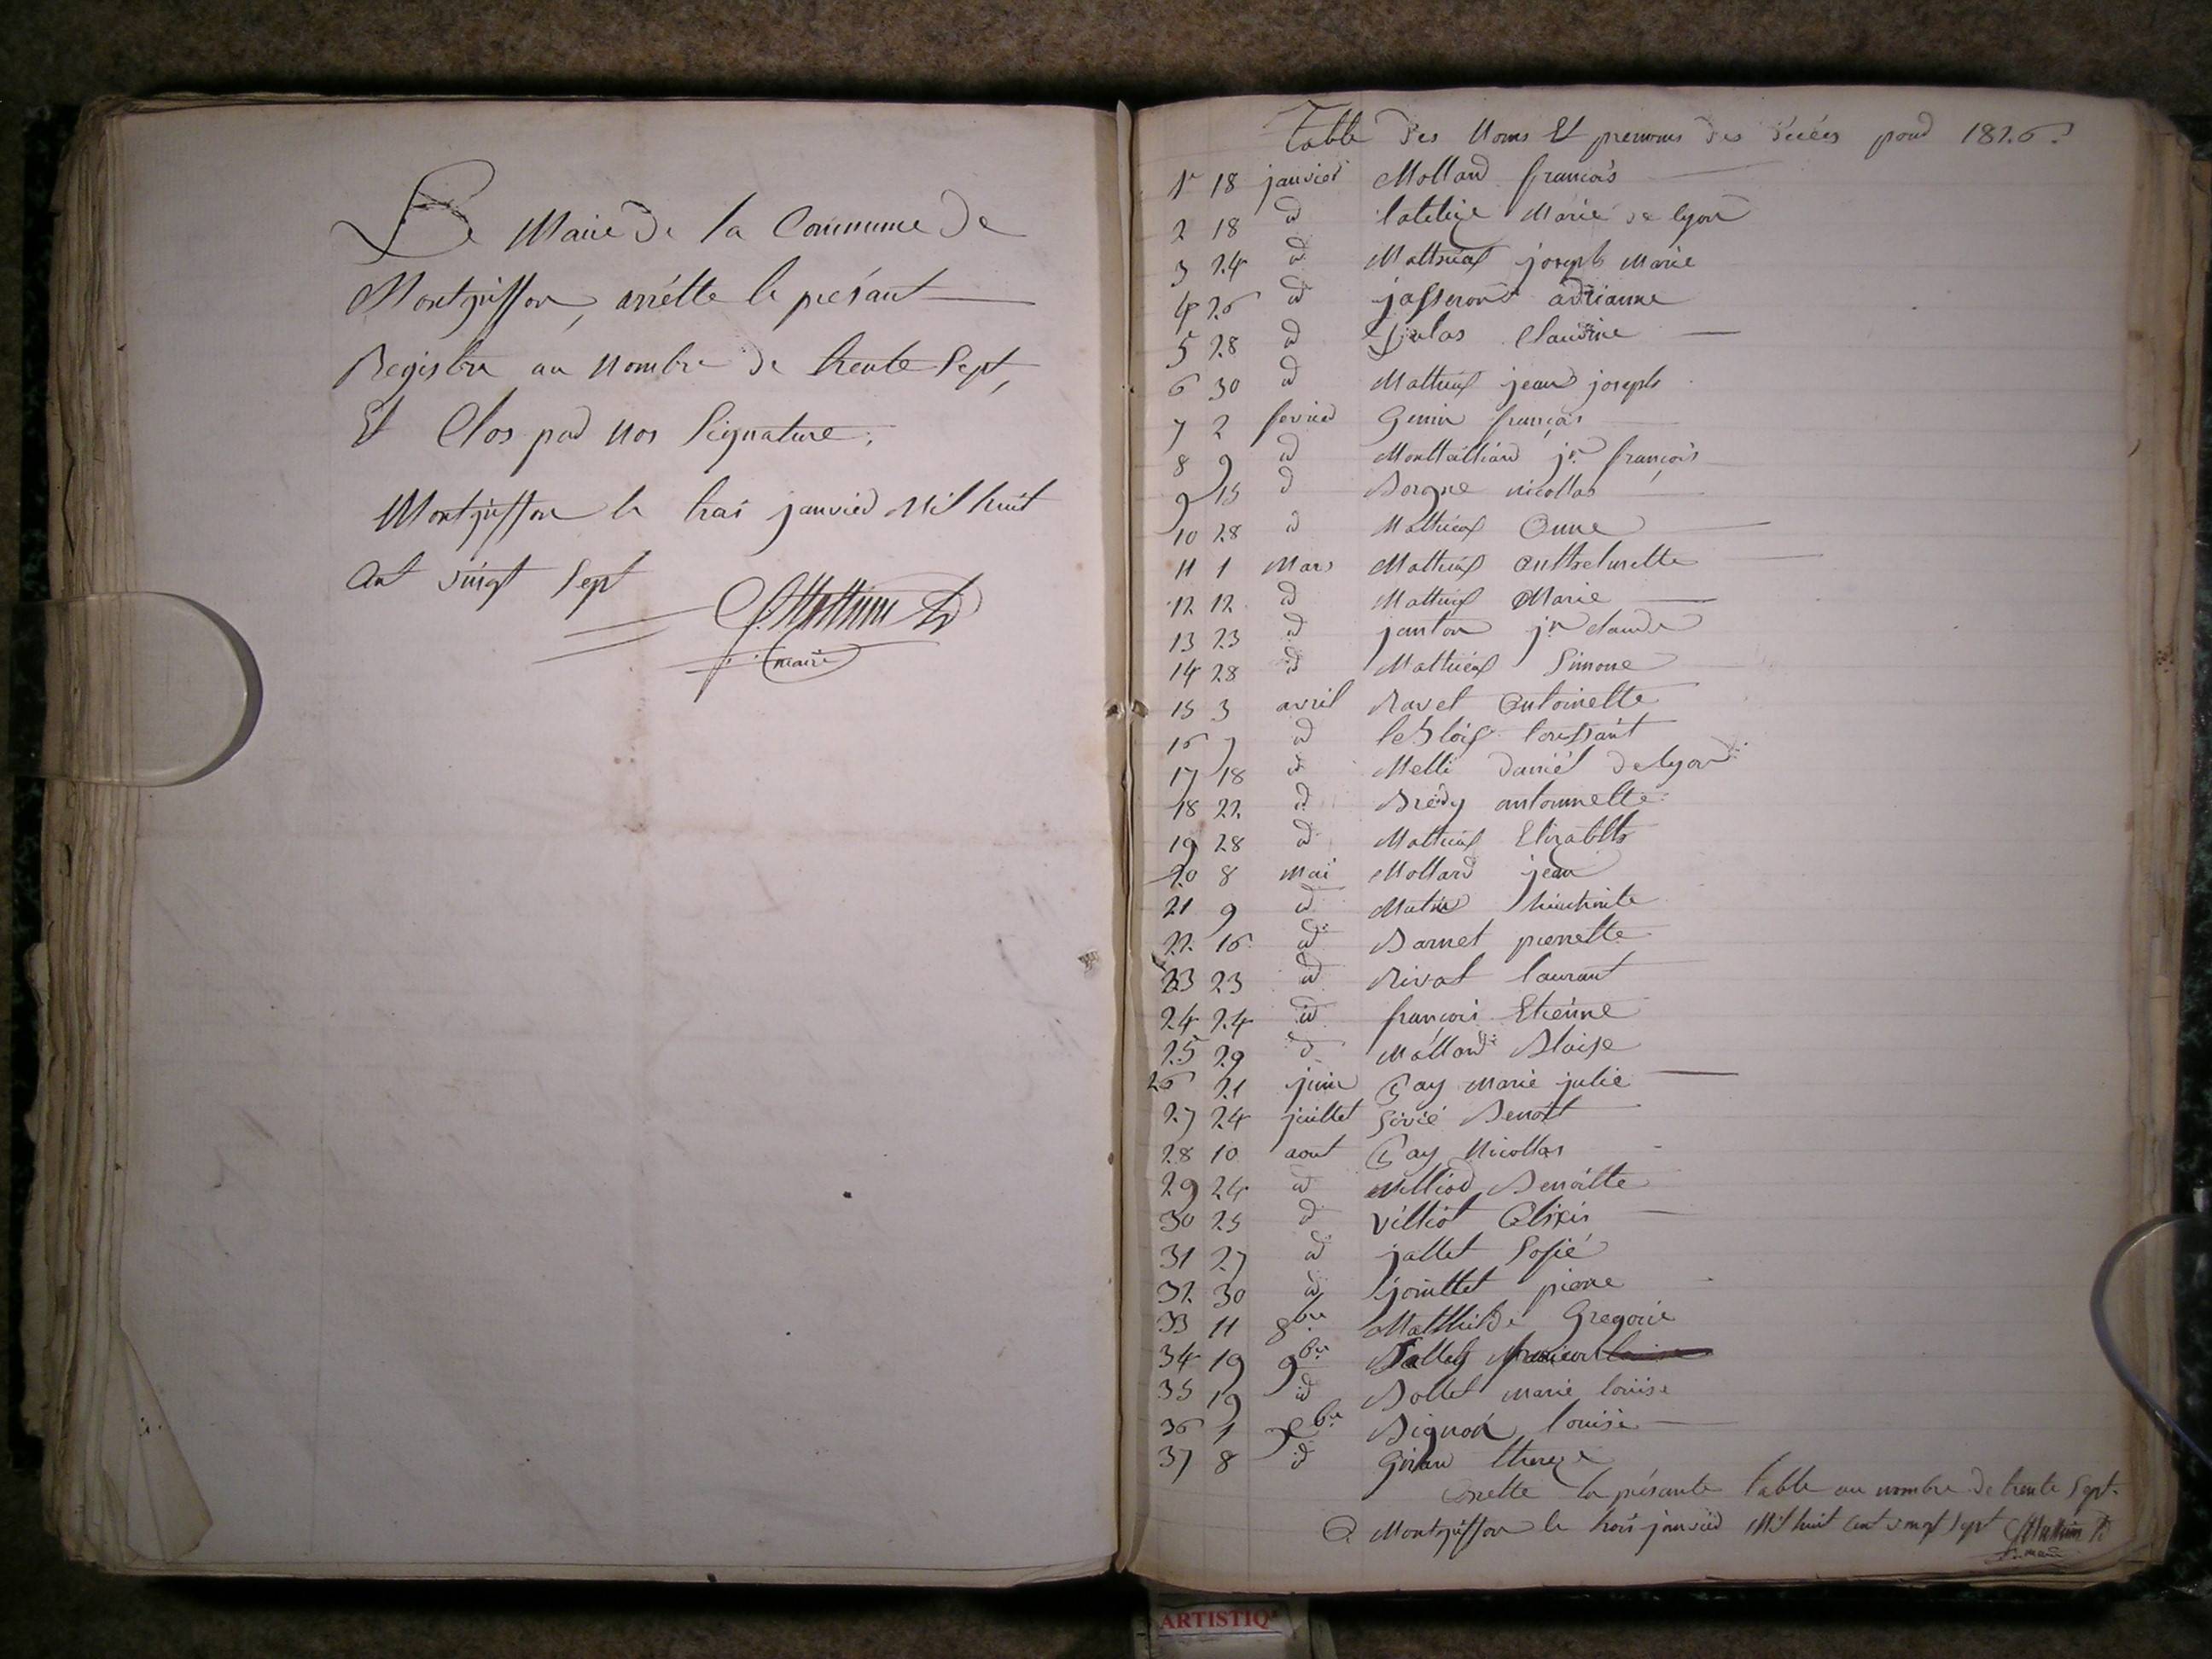 Le Maire de la Commune de
Montgriffon, arrétte le présant
Registre au Nombre de trente Sept,
Et Clos par nos Signature;
Montgriffon le trai janvier Mil huit
Cent vingt Sept
maire
Table des Noms Et prenoms des décés pour 1826
1r 18 janvier Mollard francois
2 18 id Marie de lyon
3 24 id Mathieux joseph Marie
4 26 id jasseront adrianne
5 28 id Claudine
6 30 id Mathieux jean joseph
7 2 fevrier Genin françois
8 9 id Montailliard jn françois
9 15 d Borgne nicollas
10 28 d Mathieux Anne
11 1 Mars Mathieux Antthelmette
12 12 id Mathieux Marie
13 23 id janton jn claude
14 28 id Mathieux Simone
15 3 avril Ravet Antoinette
16 7 id
17 18 id Melli daniél de lyon
18 22 id Brédy antoinnette
19 28 id Mathieux Elizabeth
20 8 Mai Mollard jean
21 9 id
22 16 id Barnet pierrette
23 23 id Rivat laurant
24 24 id francois Etiénne
25 29 d Mollard Blaise
26 21 juin Gay Marie julie
27 24 juillet Benoit
28 10 aout Gay Nicollas
29 24 id Benoitte
30 25 d Villiot Alixis
31 27 id jallet Sofié
32 30 id jouillet pierre
33 11 8bre Gregoire
34 19 9bre
35 19 id Bollet Marie louise
36 1 Xbre Bignon louise
37 8 id thereze
Arrette la présante Table au nombre de trente Sept.
A Montgriffon le trois janvier Mil huit Cent vingt Sept
maire
ARTISTIQ